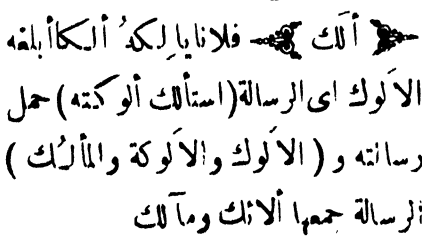 ﴿ أَلَكَ ﴾ فلانا يا لِكهُ ألكا أبلغه
الألوك اى الرسالة (استألك ألوكته) حمل
رسالته و (الألوك والألوكة والمألُك)
الرسالة جمعها ألائك ومآلك